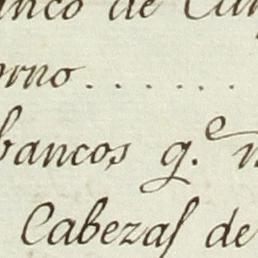 anco de Can
orno.......
bancos q.e
Cabezas de